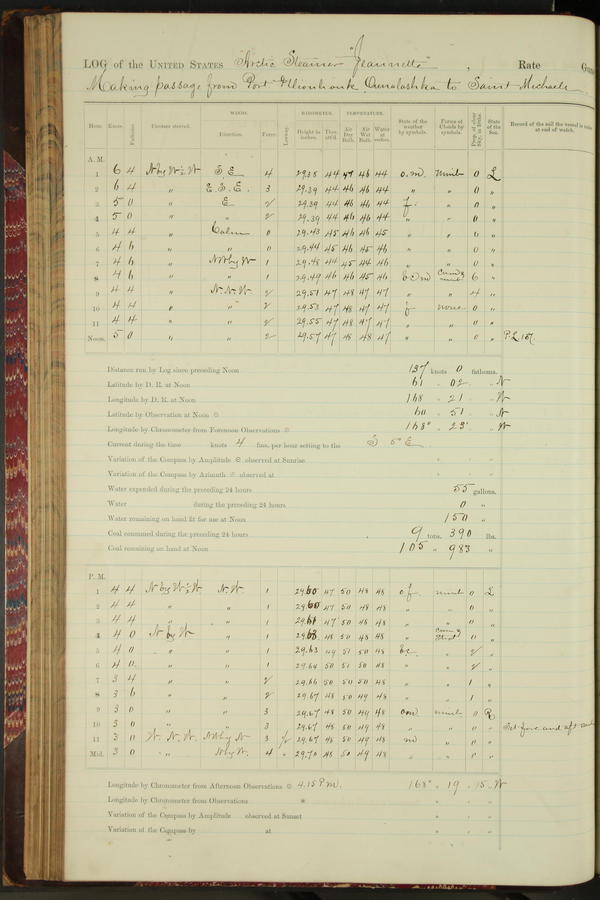 LOG of the UNITED STATES Arctic Steamer "Jeannette", Rate
Making passage from Port Illiouliouk Ounalashka to Saint Michaels
Hour. Knots. Fathoms. Courses steered. WINDS. Direction. Force. Leeway. BAROMETER. Height in inches. Ther. att'd. TEMPERATURE. Air Dry Bulb. Air Wet Bulb. Water at surface. State of the weather by symbols. Forms of Clouds by symbols. Prop. of clear Sky, in 10ths. State of the Sea. Record of the sail the vessel is under at end of watch.
A.M.
1 6 4 N by W ½ W S.E. 4 29.38 44 47 46 44 o.m. nimb 0 L
2 6 4 " E.S.E. 3 29.39 44 46 46 44 " " 0 "
3 5 0 " E 2 29.39 44 46 46 44 f. " 0 "
4 5 0 " " 2 29.39 44 46 46 44 " " 0 "
5 4 4 " Calm 0 29.43 45 46 46 45 " " 0 "
6 4 6 " " 0 29.44 45 46 45 46 " " 0 "
7 4 6 " NW by W 1 29.48 44 45 44 46 " " 0 "
8 4 6 " " 1 29.49 46 46 45 46 b.c.m cum & nimb 6 "
9 4 4 " N.N.W. 2 29.51 47 48 47 47 " " 4 "
10 4 4 " " 2 29.53 47 48 47 47 f none 0 "
11 4 4 " " 2 29.55 47 48 47 47 " " 0 "
Noon. 5 0 " " 2 29.57 47 48 48 47 " " 0 " P.L. 137
Distance run by Log since preceding Noon 137 knots 0 fathoms.
Latitude by D. R. at Noon 61 " 02 " N
Longitude by D. R. at Noon 168 " 21 " W
Latitude by Observation at Noon 60 " 51 " N
Longitude by Chronometer from Forenoon Observations 168° " 23' " W
Current during the time knots 4 fms. per hour setting to the S 5° E
Variation of the Compass by Amplitude observed at Sunrise
Variation of the Compass by Azimuth observed at
Water expended during the preceding 24 hours 55 gallons.
Water during the preceding 24 hours 0 "
Water remaining on hand fit for use at Noon 150 "
Coal consumed during the preceding 24 hours 9 tons. 390 lbs.
Coal remaining on hand at Noon 105 " 983 "
P.M.
1 4 4 N by W ½ W N.W. 1 29.60 47 50 48 48 o.f. nimb 0 L
2 4 4 " " 1 29.60 47 50 48 48 " " 0 "
3 4 4 " " 1 29.61 47 50 48 48 " " 0 "
4 4 0 N by W " 1 29.62 48 50 48 48 " cum & Strat 0 "
5 4 0 " " 1 29.63 49 51 50 48 b.c. " 2 "
6 4 0 " " 1 29.64 50 51 50 48 " " 2 "
7 3 4 " " 2 29.66 50 50 50 48 " " 1 "
8 3 6 " " 2 29.67 48 50 49 48 " " 1 "
9 3 0 " " 3 29.67 48 50 49 48 o.m nimb 0 R
10 3 0 " " 3 29.67 48 50 49 48 " " 0 " Set fore and aft
11 3 0 W.N.W. NW by N 3 29.67 48 50 49 48 m " 0 "
Mid. 3 0 " N by W. 4 " 29.70 48 50 49 48 " " 0 "
Longitude by Chronometer from Afternoon Observations 4.15 P.m. 168° " 19 " 15 " W
Longitude by Chronometer from Observations
Variation of the Compass by Amplitude observed at Sunset
Variation of the Compass by at